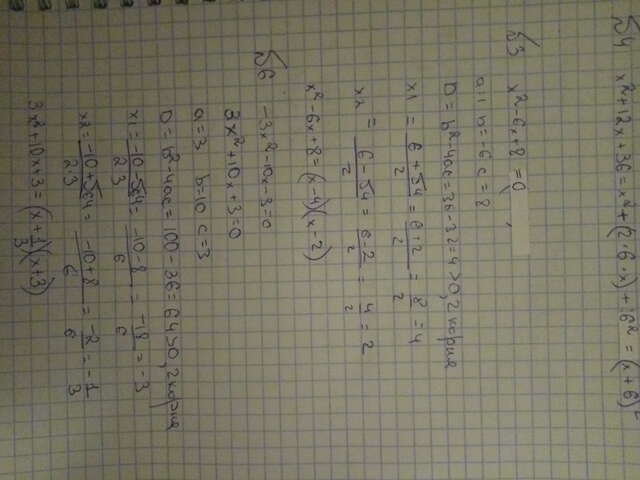 54 x²+12x+36=x²+(2·6·x)+6²=(x+6)²
53 x²-6x+8=0
a=1 b=-6 c=8
D=b²-4ac=36-32=4>0, 2 корня
x1 = 6+√4/2 = 6+2/2 = 8/2 = 4
x2 = 6-√4/2 = 6-2/2 = 4/2 = 2
x²-6x+8=(x-4)(x-2)
56 -3x²-10x-3=0
3x²+10x+3=0
a=3 b=10 c=3
D=b²-4ac=100-36=64>0, 2 корня
x1= -10-√64/2·3 = -10-8/6 = -18/6 = -3
x2= -10+√64/2·3 = -10+8/6 = -2/6 = -1/3
3x²+10x+3=(x+1/3)(x+3)